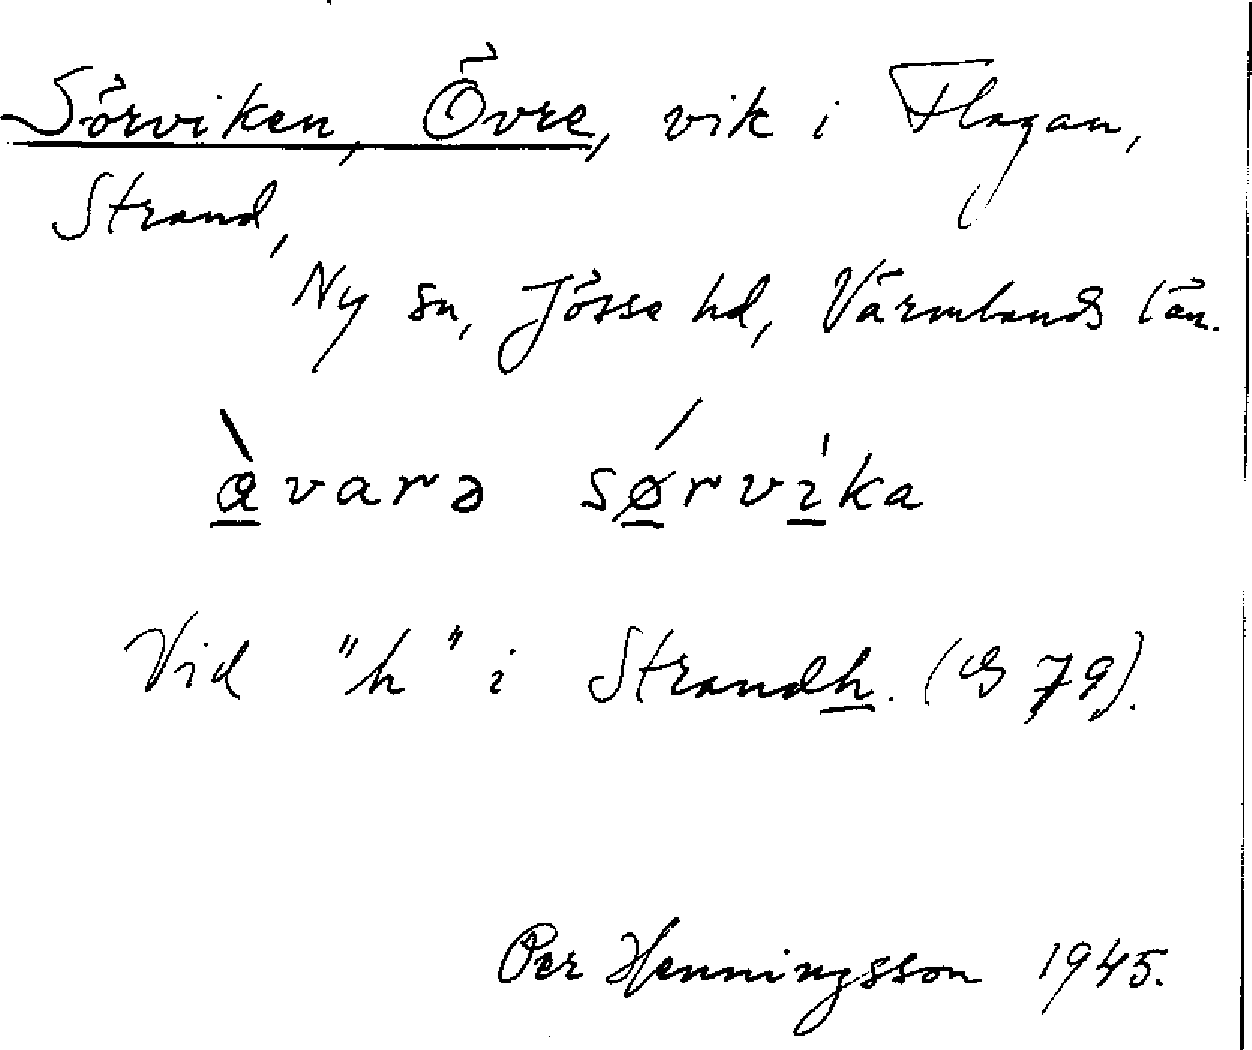 Sörviken, Övre, vik i Flagan,
Strand,
Ny sn, Jösse hd, Värmlands län.
àvarə sørvika
Vid "h" i Strandh. (B 79).
Per Henningsson 1945.